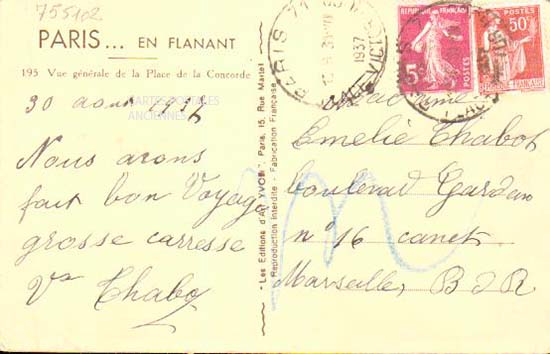 755102
PARIS... EN FLANANT
195 Vue générale de la Place de la Concorde
30 aout 1937
CARTES POSTALES
ANCIENNES
Nous avons
fait bon Voyage
grosse carresse
Vve Chabot
"Les Editions d'Art YVON", Paris, 15, Rue Martel
Reproduction interdite - Fabrication Française
PARIS
1937
PLACE VICTOR
REPUBLIQUE FRANÇAISE
5c
POSTES
50c
Madame
Emelie Chabot
boulevard Gardan
n° 16 canet
Marseille, B D R